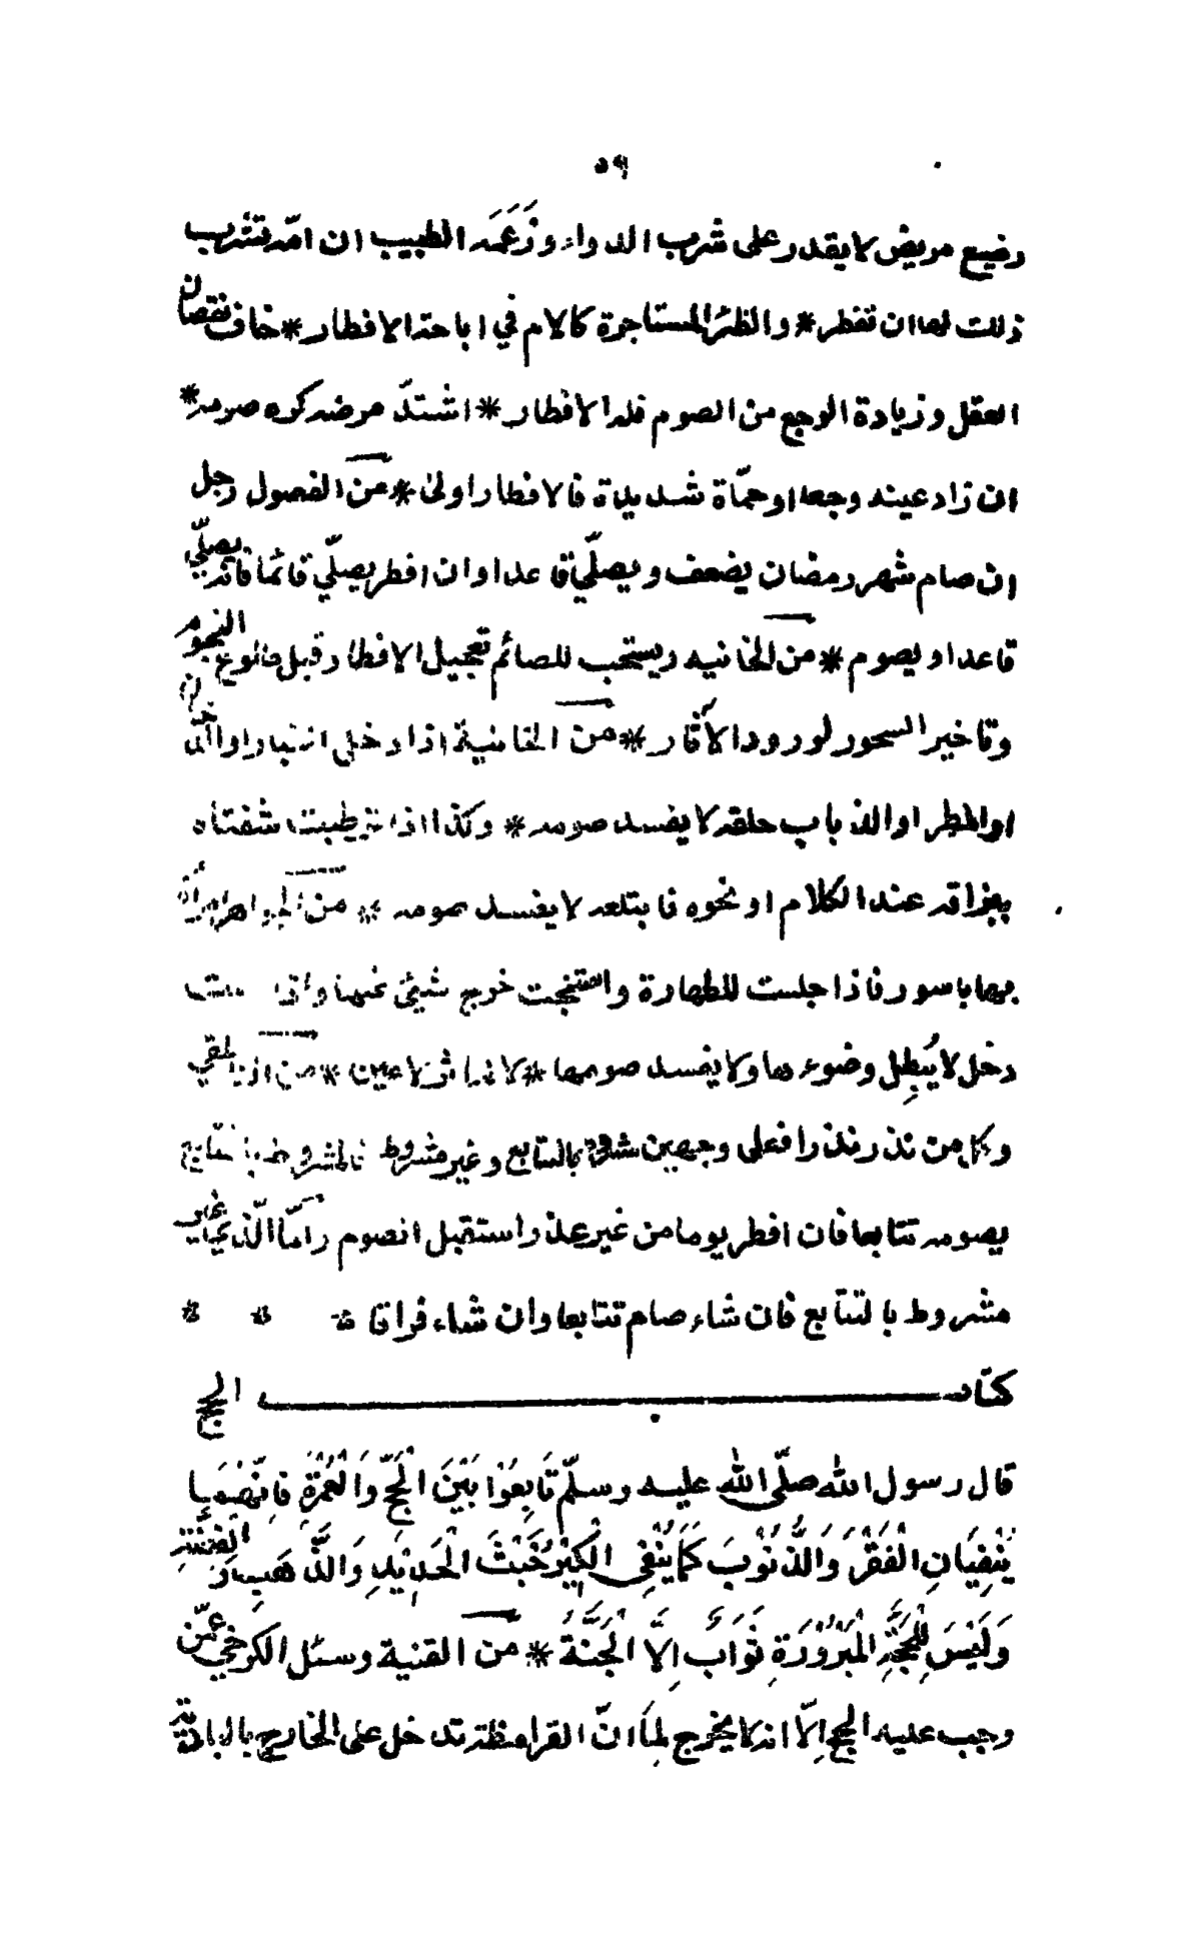 ٥٩
رضيع مريض لا يقدر على شرب الدواء وزَعَمَ الطبيب ان امّه تشرب
ذلك لها ان تفطر * والظئر المستاجرة كالام في اباحة الافطار * خاف نقصان
العقل وزيادة الوجع من الصوم فله الافطار * اشتدّ مرضه كره صومه *
ان زاد عينه وجعا او حمّاة شديدة فالافطار اولىٰ * من الفصول رجل
ان صام شهر رمضان يضعف ويصلّي قاعدا وان افطر يصلّي قائما فانه يصلّي
قاعدا ويصوم * من الخانيه ويستحب للصائم تعجيل الافطار قبل طلوع النجوم
وتاخير السحور لورود الآثار * من الخانية اذا دخل الغبار او الدخان
او المطر او الذباب حلقه لا يفسد صومه * وكذا اذا ترطبت شفتاه
ببزاقه عند الكلام او نحوه فابتلعه لا يفسد صومه * من الجواهر امرأة
بها باسور فاذا جلست للطهارة وانتفجت خرج شيئ منها واذا
دخل لا يُبطِل وضوءها ولا يفسد صومها * لا اثر لا عين * من الملتقي
وكل من نذر نذرا فعلى وجهين بالتتابع وغير مشروط فالمشروط بالتتابع
يصومه تتابعا فان افطر يوما من غير عذر استقبل الصوم وامّا الّذي غير
مشروط بالتتابع فان شاء صام تتابعا وان شاء فراقا * * *
كتاب الحج
قال رسول الله صلّى الله عليه وسلّم تَابِعُوْا بَيْنَ الْحَجِّ وَالْعُمْرَةِ فَاِنَّهُمَا
يَنْفِيَانِ الْفَقْرَ وَالذُّنُوْبَ كَمَا يَنْفِى الْكِيْرُ خَبَثَ الْحَدِيْدِ وَالذَّهَبِ وَالْفِضَّةِ
وَلَيْسَ لِلْحَجَّةِ الْمَبْرُوْرَةِ ثَوَابٌ اِلَّا الْجَنَّةُ * من القنية وسئل الكرخي عمّن
وجب عليه الحج اِلّا انه لا يخرج لِمَا انّ القرامطة تدخل على الخارج بالبادية